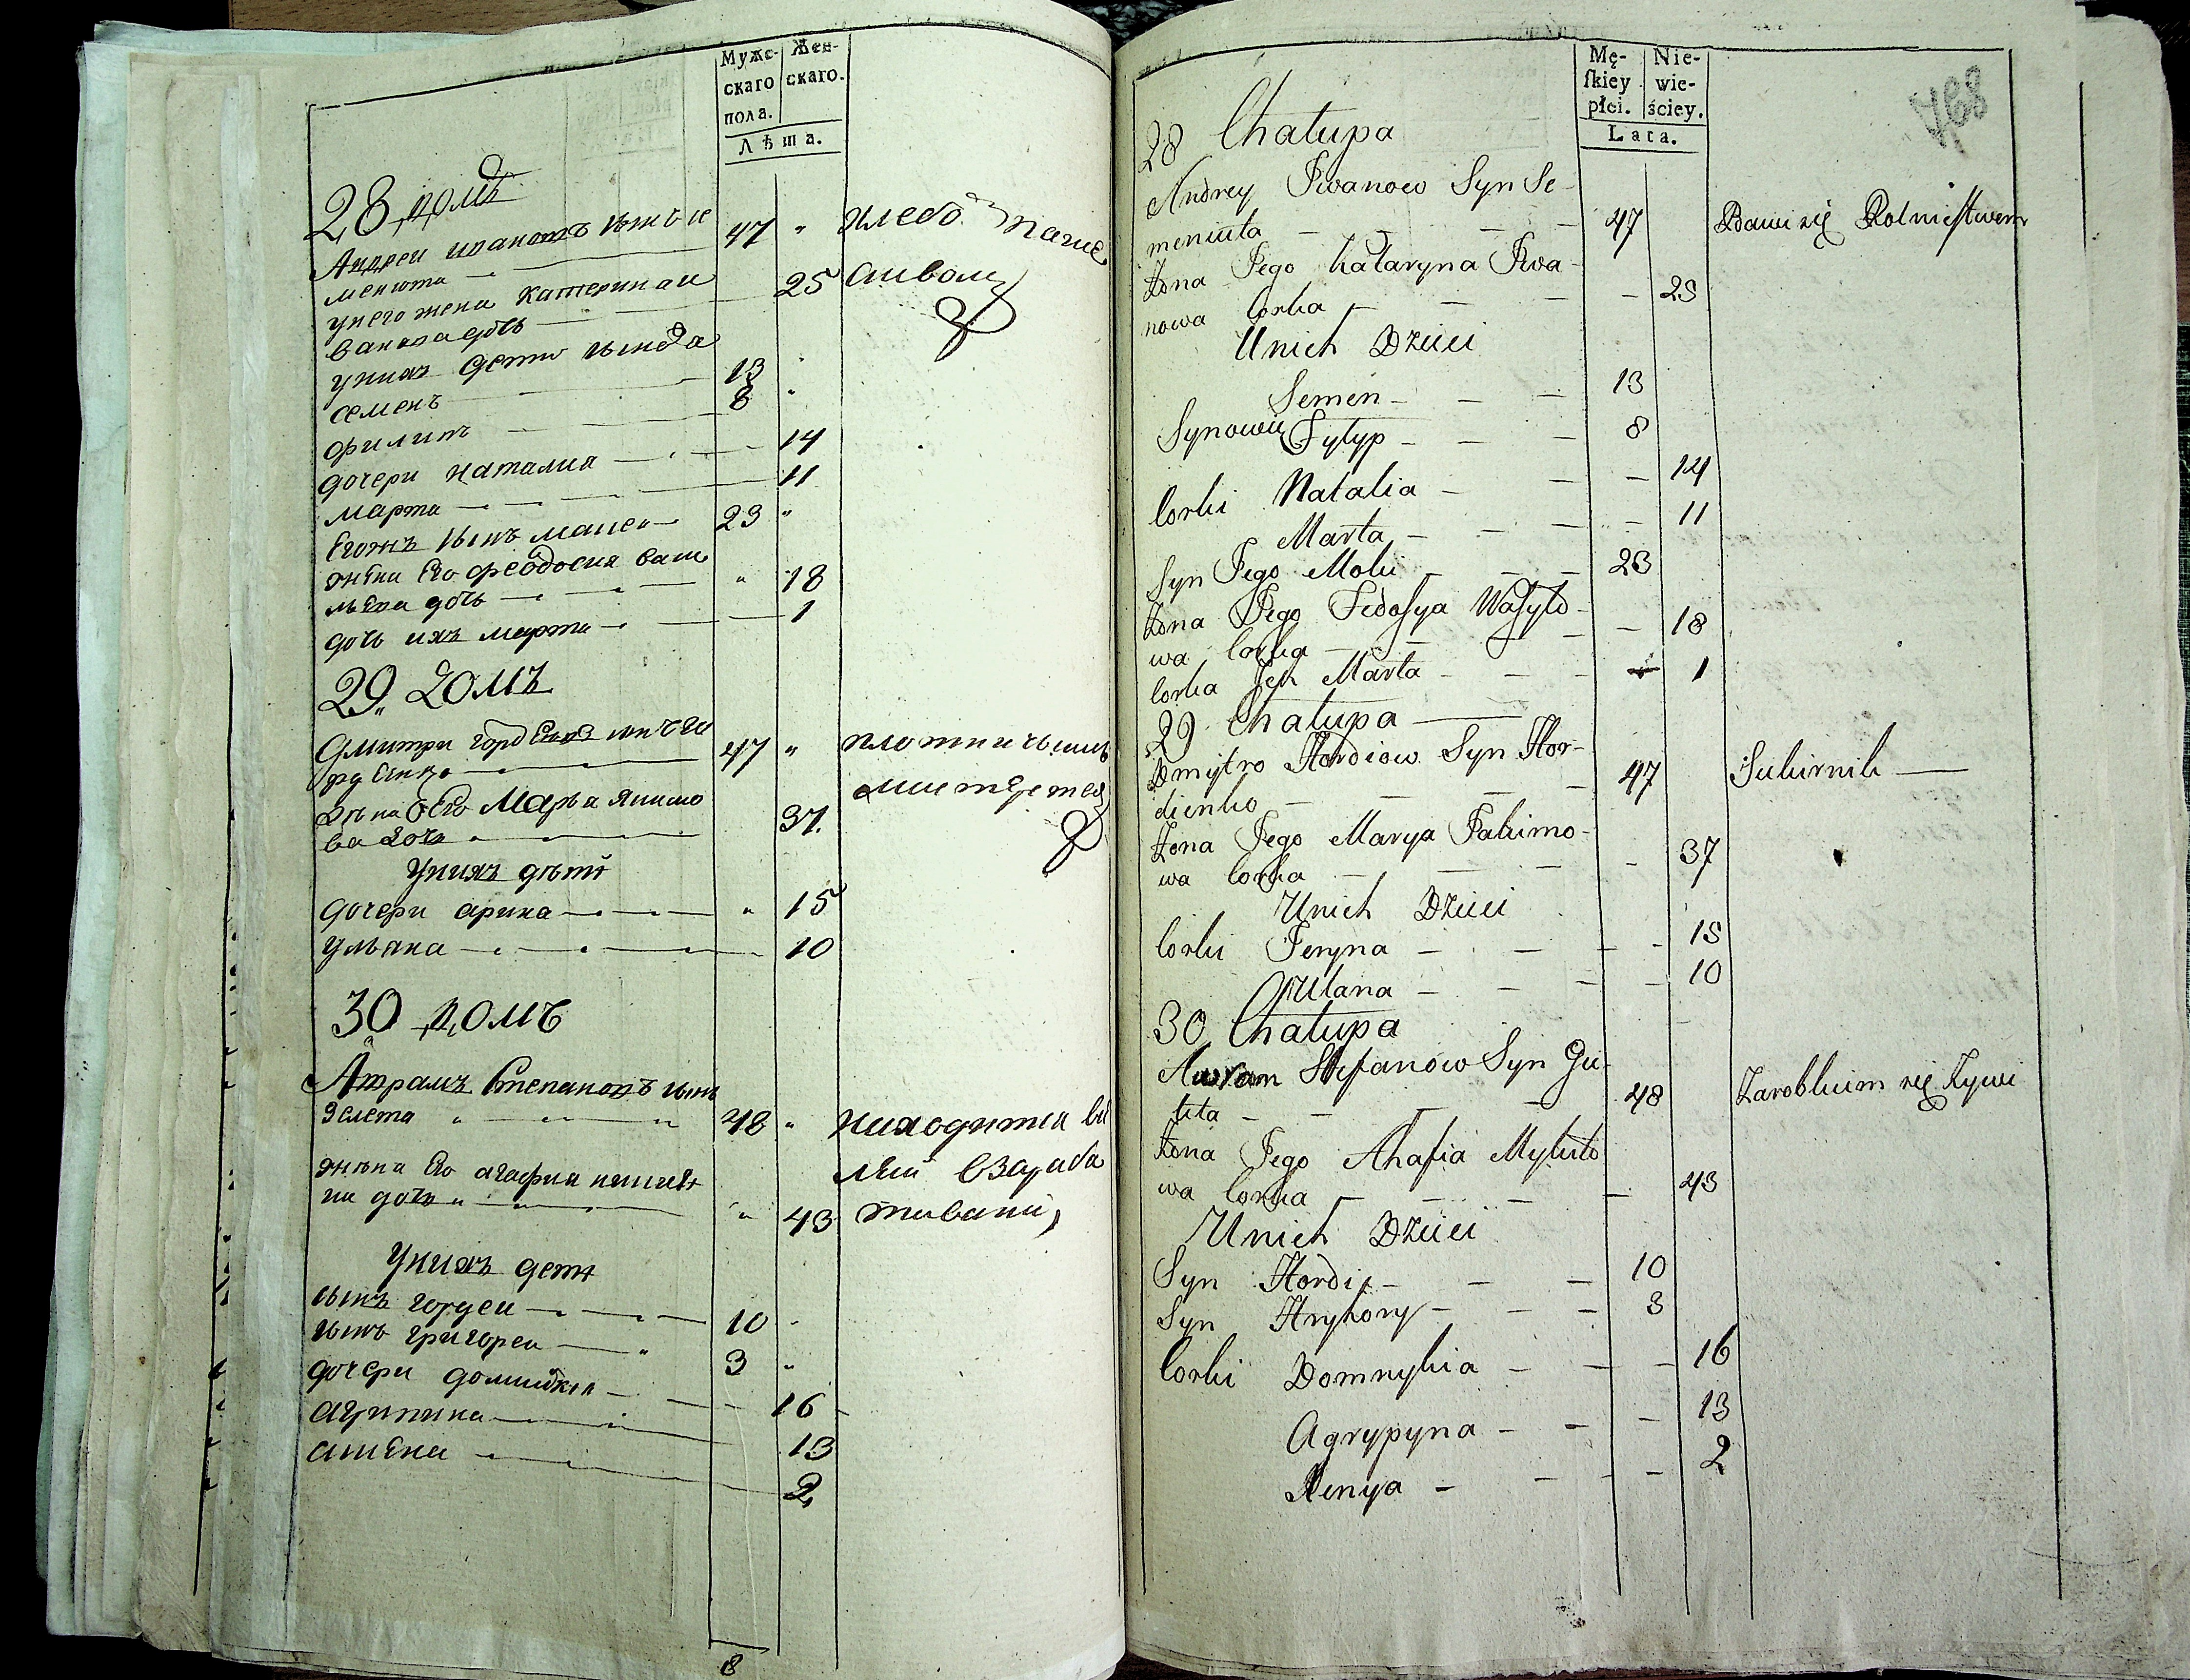 Мужс-
скаго
пола.
Жен-
скаго.
Лѣта.
28 домъ
Андреи ивановъ сынъ се
менюта 47 " хлебо паше
унего жена катерина и
ванова дочь 25
уних дети сынова
семенъ 13 "
филипъ 8 "
дочери наталия 14
марта 11
Егожъ сынъ 23 "
жена Его феодосия васи
льева дочь " 18
дочь ихъ марта 1
29 домъ
Дмитри гордеевъ сынъ го
рдеенко 47 " плотничьимъ
жена Его Марья якимо
ва дочь 37
Унихъ дѣти
дочери арина " 15
ульяна 10
30 домъ
Аврамъ Степановъ сынъ
48 " находится
жена Его агафия
на дочь " 43
Унихъ дети
сынъ гордеи 10
сынъ григореи 3 "
дочери 16
агрипина 13
2
8
Mę-
ſkiey
płci.
Nie-
wie-
ściey.
Lata.
768
28 Chałupa
Andrey Iwanow Syn Se-
meniuta 47 Bawi się Rolnictwem
Żona Jego Kataryna Iwa-
nowa Corka 25
Unich Dzieci
Semen 13
Synowie Fylyp 8
Corki Natalia 14
Marta 11
Syn Jego 23
Żona Jego Fedosya Wasylo-
wa Corka 18
Corka Ich Marta 1
29 Chałupa
Dmytro Hordiow Syn Hor-
dienko 47
Żona Jego Marya Jakimo-
wa Corka 37
Unich Dzieci
Corki Jeryna 15
Ulana 10
30 Chałupa
Awram Stefanow Syn
48 Zarobkiem się Żywi
Żona Jego Ahafia
wa Corka 43
Unich Dzieci
Syn Hordij 10
Syn Hryhory 3
Corki Domnykia 16
Agrypyna 13
Xenya 2